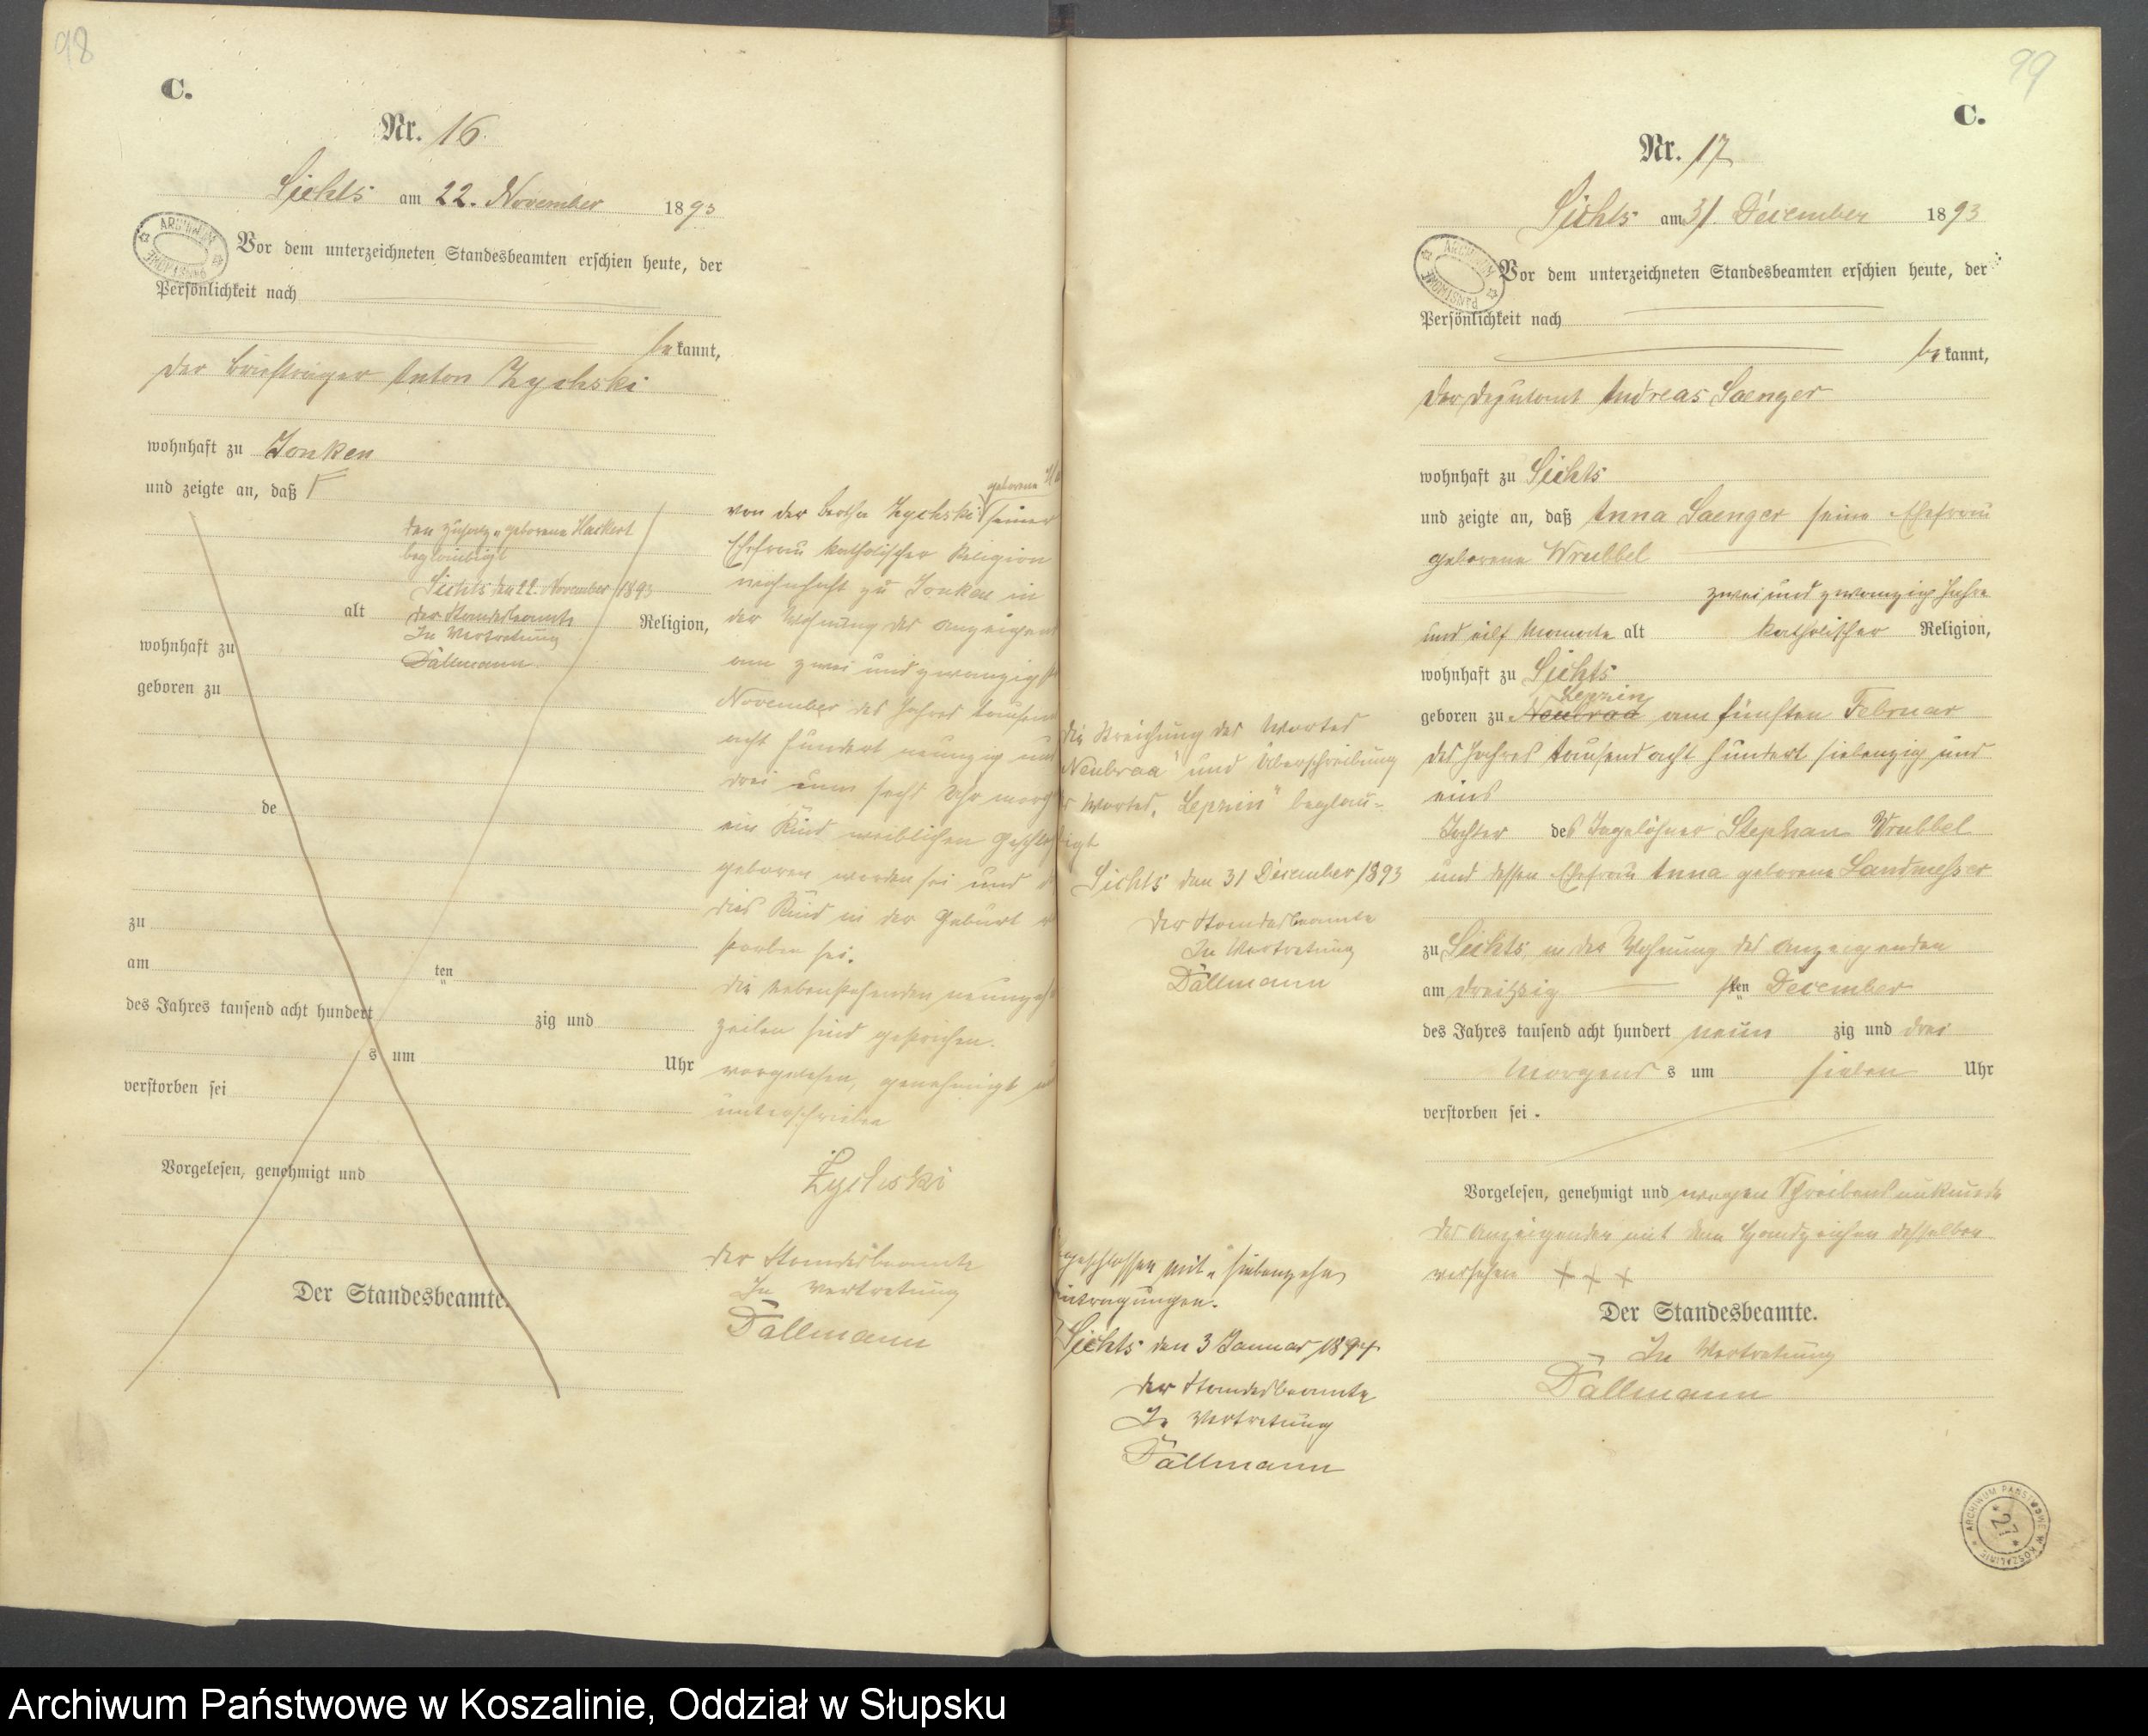 98
C.
Nr. 16.
Lichts am 22. November 1893
ARCHIWUM PAŃSTWOWE
Vor dem unterzeichneten Standesbeamten erschien heute, der
Persönlichkeit nach
bekannt,
der Briefträger Anton Zychski
wohnhaft zu Jonken
und zeigte an, daß
den Zusatz „geborene Hackert
beglaubigt
Lichts den 22. November 1893
der Standesbeamte
In Vertretung
Dällmann
alt Religion,
wohnhaft zu
geboren zu
de
zu
am ten
des Jahres tausend acht hundert zig und
s um Uhr
verstorben sei
Vorgelesen, genehmigt und
Der Standesbeamte.
geborene
von der Bertha Zychski seiner
Ehefrau katholischer Religion
wohnhaft zu Jonken in
der Wohnung des
am zwei und zwanzig
November des Jahres
acht hundert neunzig
drei um sechs Uhr
ein Kind weiblichen
geboren worden sei und
dies Kind in der Geburt
storben sei.
die nebenstehenden
Zeilen sind gestrichen.
vorgelesen, genehmigt
unterschrieben
Zychski
der Standesbeamte
In Vertretung
Dällmann
99
C.
Nr. 17
Lichts am 31. December 1893
ARCHIWUM PAŃSTWOWE
Vor dem unterzeichneten Standesbeamten erschien heute, der
Persönlichkeit nach
bekannt,
der Deputant Andreas Saenger
wohnhaft zu Lichts
und zeigte an, daß Anna Saenger seine Ehefrau
geborene Wrubbel
zwei und zwanzig Jahre
und eilf Monate alt katholischer Religion,
wohnhaft zu Lichts
Lepzin
geboren zu Neubraa am fünften Februar
des Jahres tausend acht hundert siebenzig und
eins
Tochter des Tagelöhner Stephan Wrubbel
und dessen Ehefrau Anna geborene Landmesser
zu Lichts, in der Wohnung des Anzeigenden
am dreißigsten December
des Jahres tausend acht hundert neunzig und drei
Morgens um sieben Uhr
verstorben sei.
Vorgelesen, genehmigt und wegen Schreibensunkunde
des Anzeigenden mit dem Handzeichen desselben
versehen + + +
Der Standesbeamte.
In Vertretung
Dällmann
die Streichung des Wortes
Neubraa" und Ueberschreibung
Wortes „Lepzin" beglau-
igt
Lichts den 31 December 1893
der Standesbeamte
In Vertretung
Dällmann
geschlossen mit „siebenzehn
intragungen.
Lichts den 3 Januar 1894
der Standesbeamte
In Vertretung
Dällmann
ARCHIWUM PAŃSTWOWE W KOSZALINIE
27
Archiwum Państwowe w Koszalinie, Oddział w Słupsku